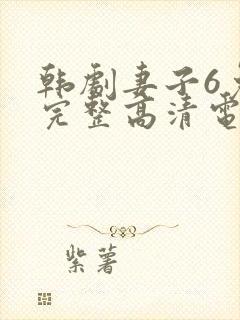 韩劇妻子6
完整高清電
紫薯